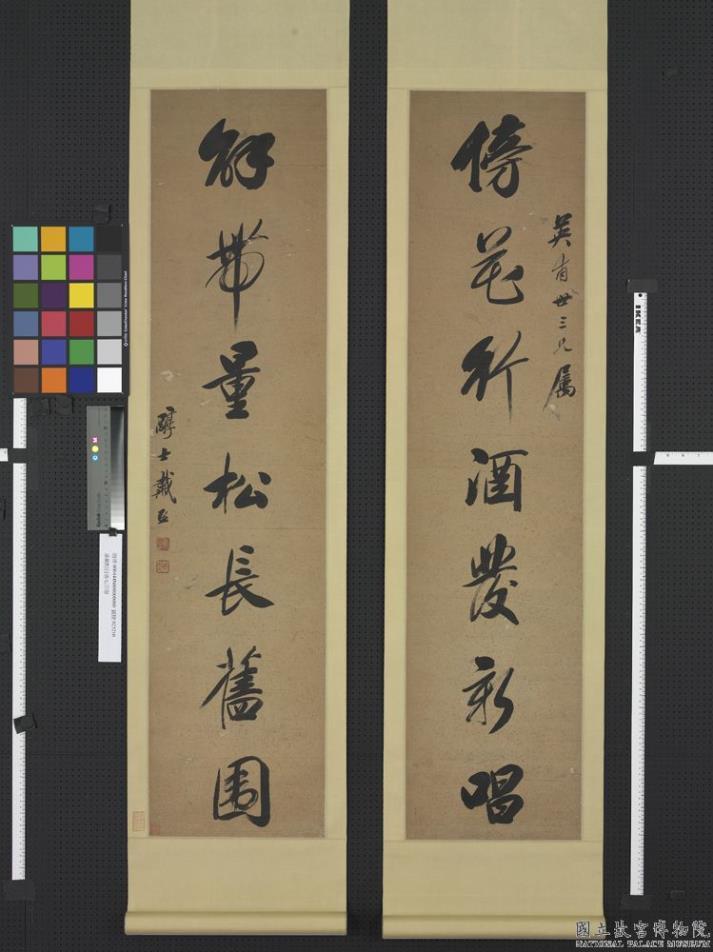 傍花行酒發新唱
世三兄屬
解帶量松長舊圍
醇士戴熙
國立故宮博物院
NATIONAL PALACE MUSEUM